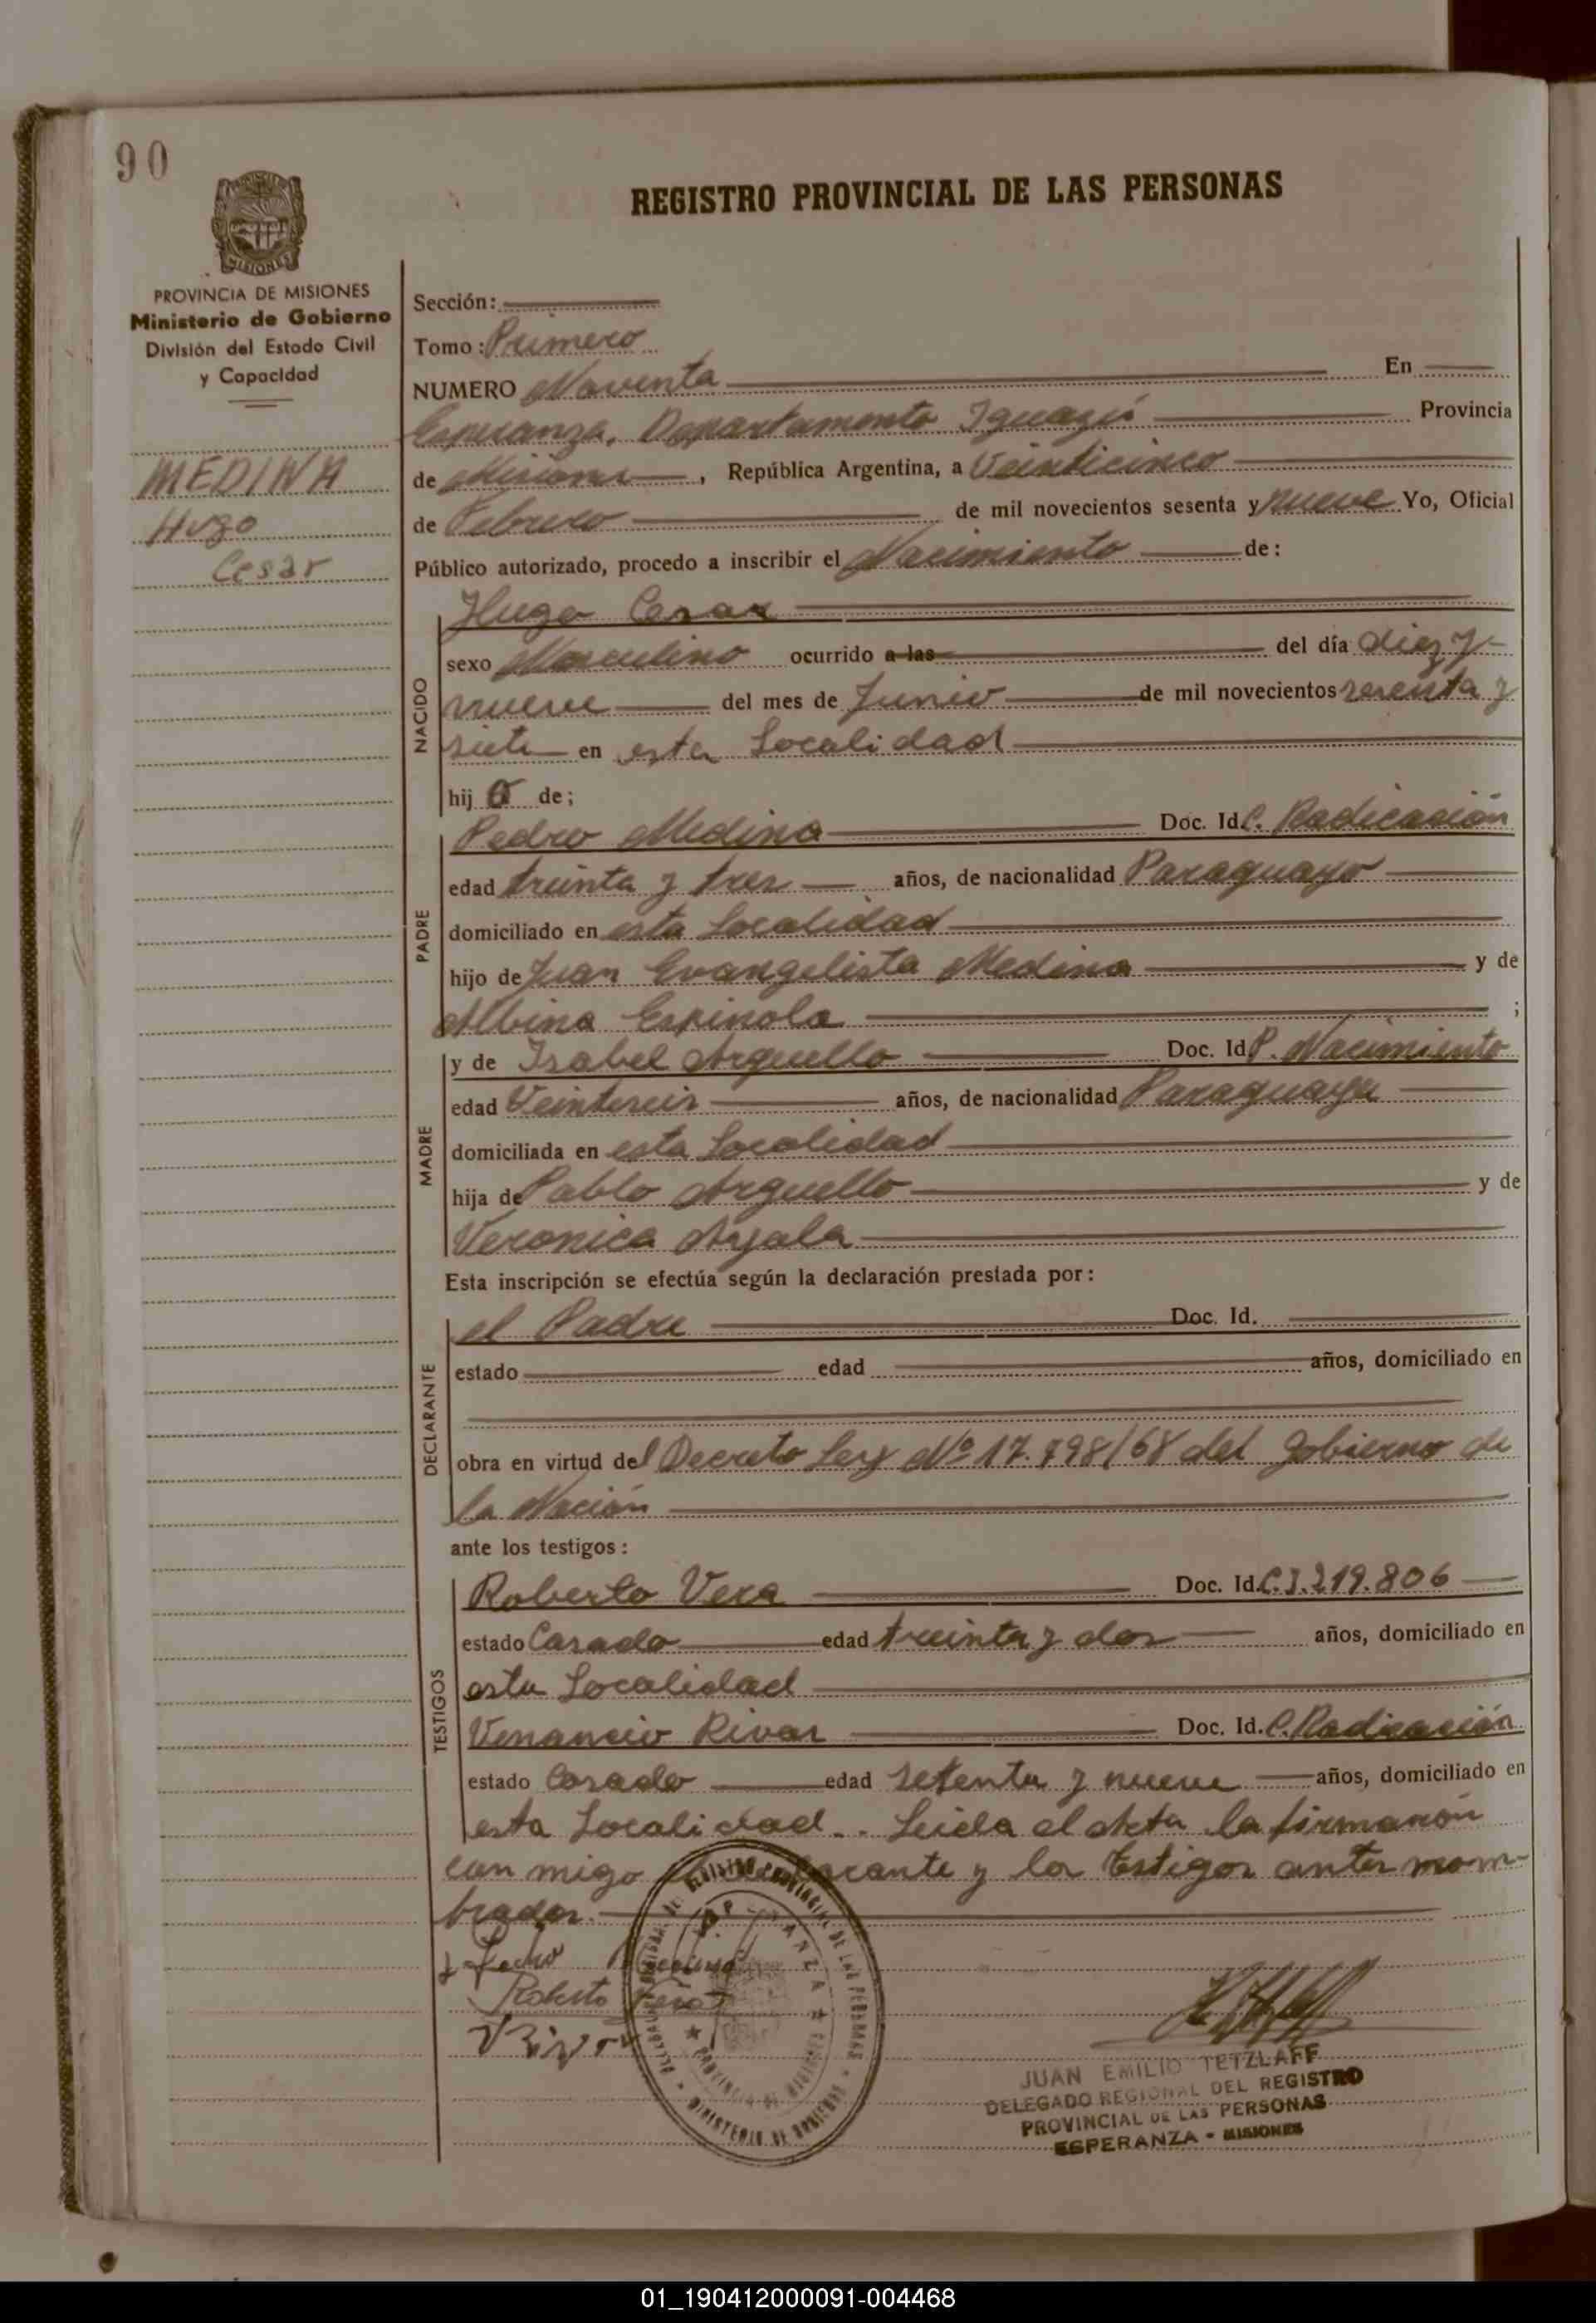 90
REGISTRO PROVINCIAL DE LAS PERSONAS
MISIONES
PROVINCIA DE MISIONES
Ministerio de Gobierno
División del Estado Civil
y Capacidad
MEDINA
Hugo
Cesar
Sección:
Tomo: Primero
NUMERO Noventa En
Esperanza, Departamento Iguazú Provincia
de Misiones, República Argentina, a Veinticinco
de Febrero de mil novecientos sesenta y nueve Yo, Oficial
Público autorizado, procedo a inscribir el Nacimiento de:
NACIDO
Hugo Cesar
sexo Masculino ocurrido a las del día diez y
nueve del mes de Junio de mil novecientos sesenta y
siete en esta Localidad
hij o de;
PADRE
Pedro Medina Doc. Id. C. Radicación
edad treinta y tres años, de nacionalidad Paraguayo
domiciliado en esta Localidad
hijo de Juan Evangelista Medina y de
Albina Espinola ;
MADRE
y de Isabel Arguello Doc. Id P. Nacimiento
edad Veintiseis años, de nacionalidad Paraguaya
domiciliada en esta Localidad
hija de Pablo Arguello y de
Veronica Ayala
Esta inscripción se efectúa según la declaración prestada por:
DECLARANTE
el Padre Doc. Id.
estado edad años, domiciliado en
obra en virtud del Decreto Ley Nº 17.798/68 del Gobierno de
la Nación
ante los testigos:
TESTIGOS
Roberto Vera Doc. Id. C.I. 219.806
estado Casado edad treinta y dos años, domiciliado en
esta Localidad
Venancio Rivas Doc. Id. C. Radicación
estado Casado edad setenta y nueve años, domiciliado en
esta Localidad.. Leida el Acta la firmarón
con migo declarante y los testigos antes nom-
brados.
Pedro Medina
Roberto Vera
V Rivas
JUAN EMILIO TETZLAFF
DELEGADO REGIONAL DEL REGISTRO
PROVINCIAL DE LAS PERSONAS
ESPERANZA - MISIONES
01_190412000091-004468